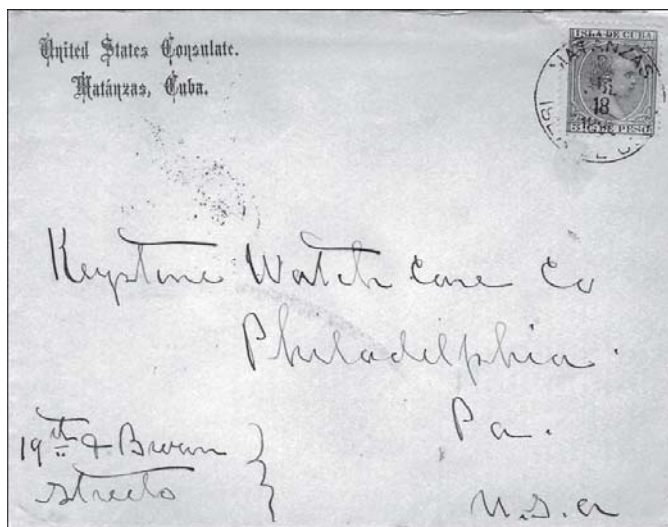 United States Consulate.
Matánzas, Cuba.
ISLA DE CUBA
MATANZAS
18
DE PESO
Keystone Watch Case Co
Philadelphia.
Pa.
19th & Brown
streets
U.S.A